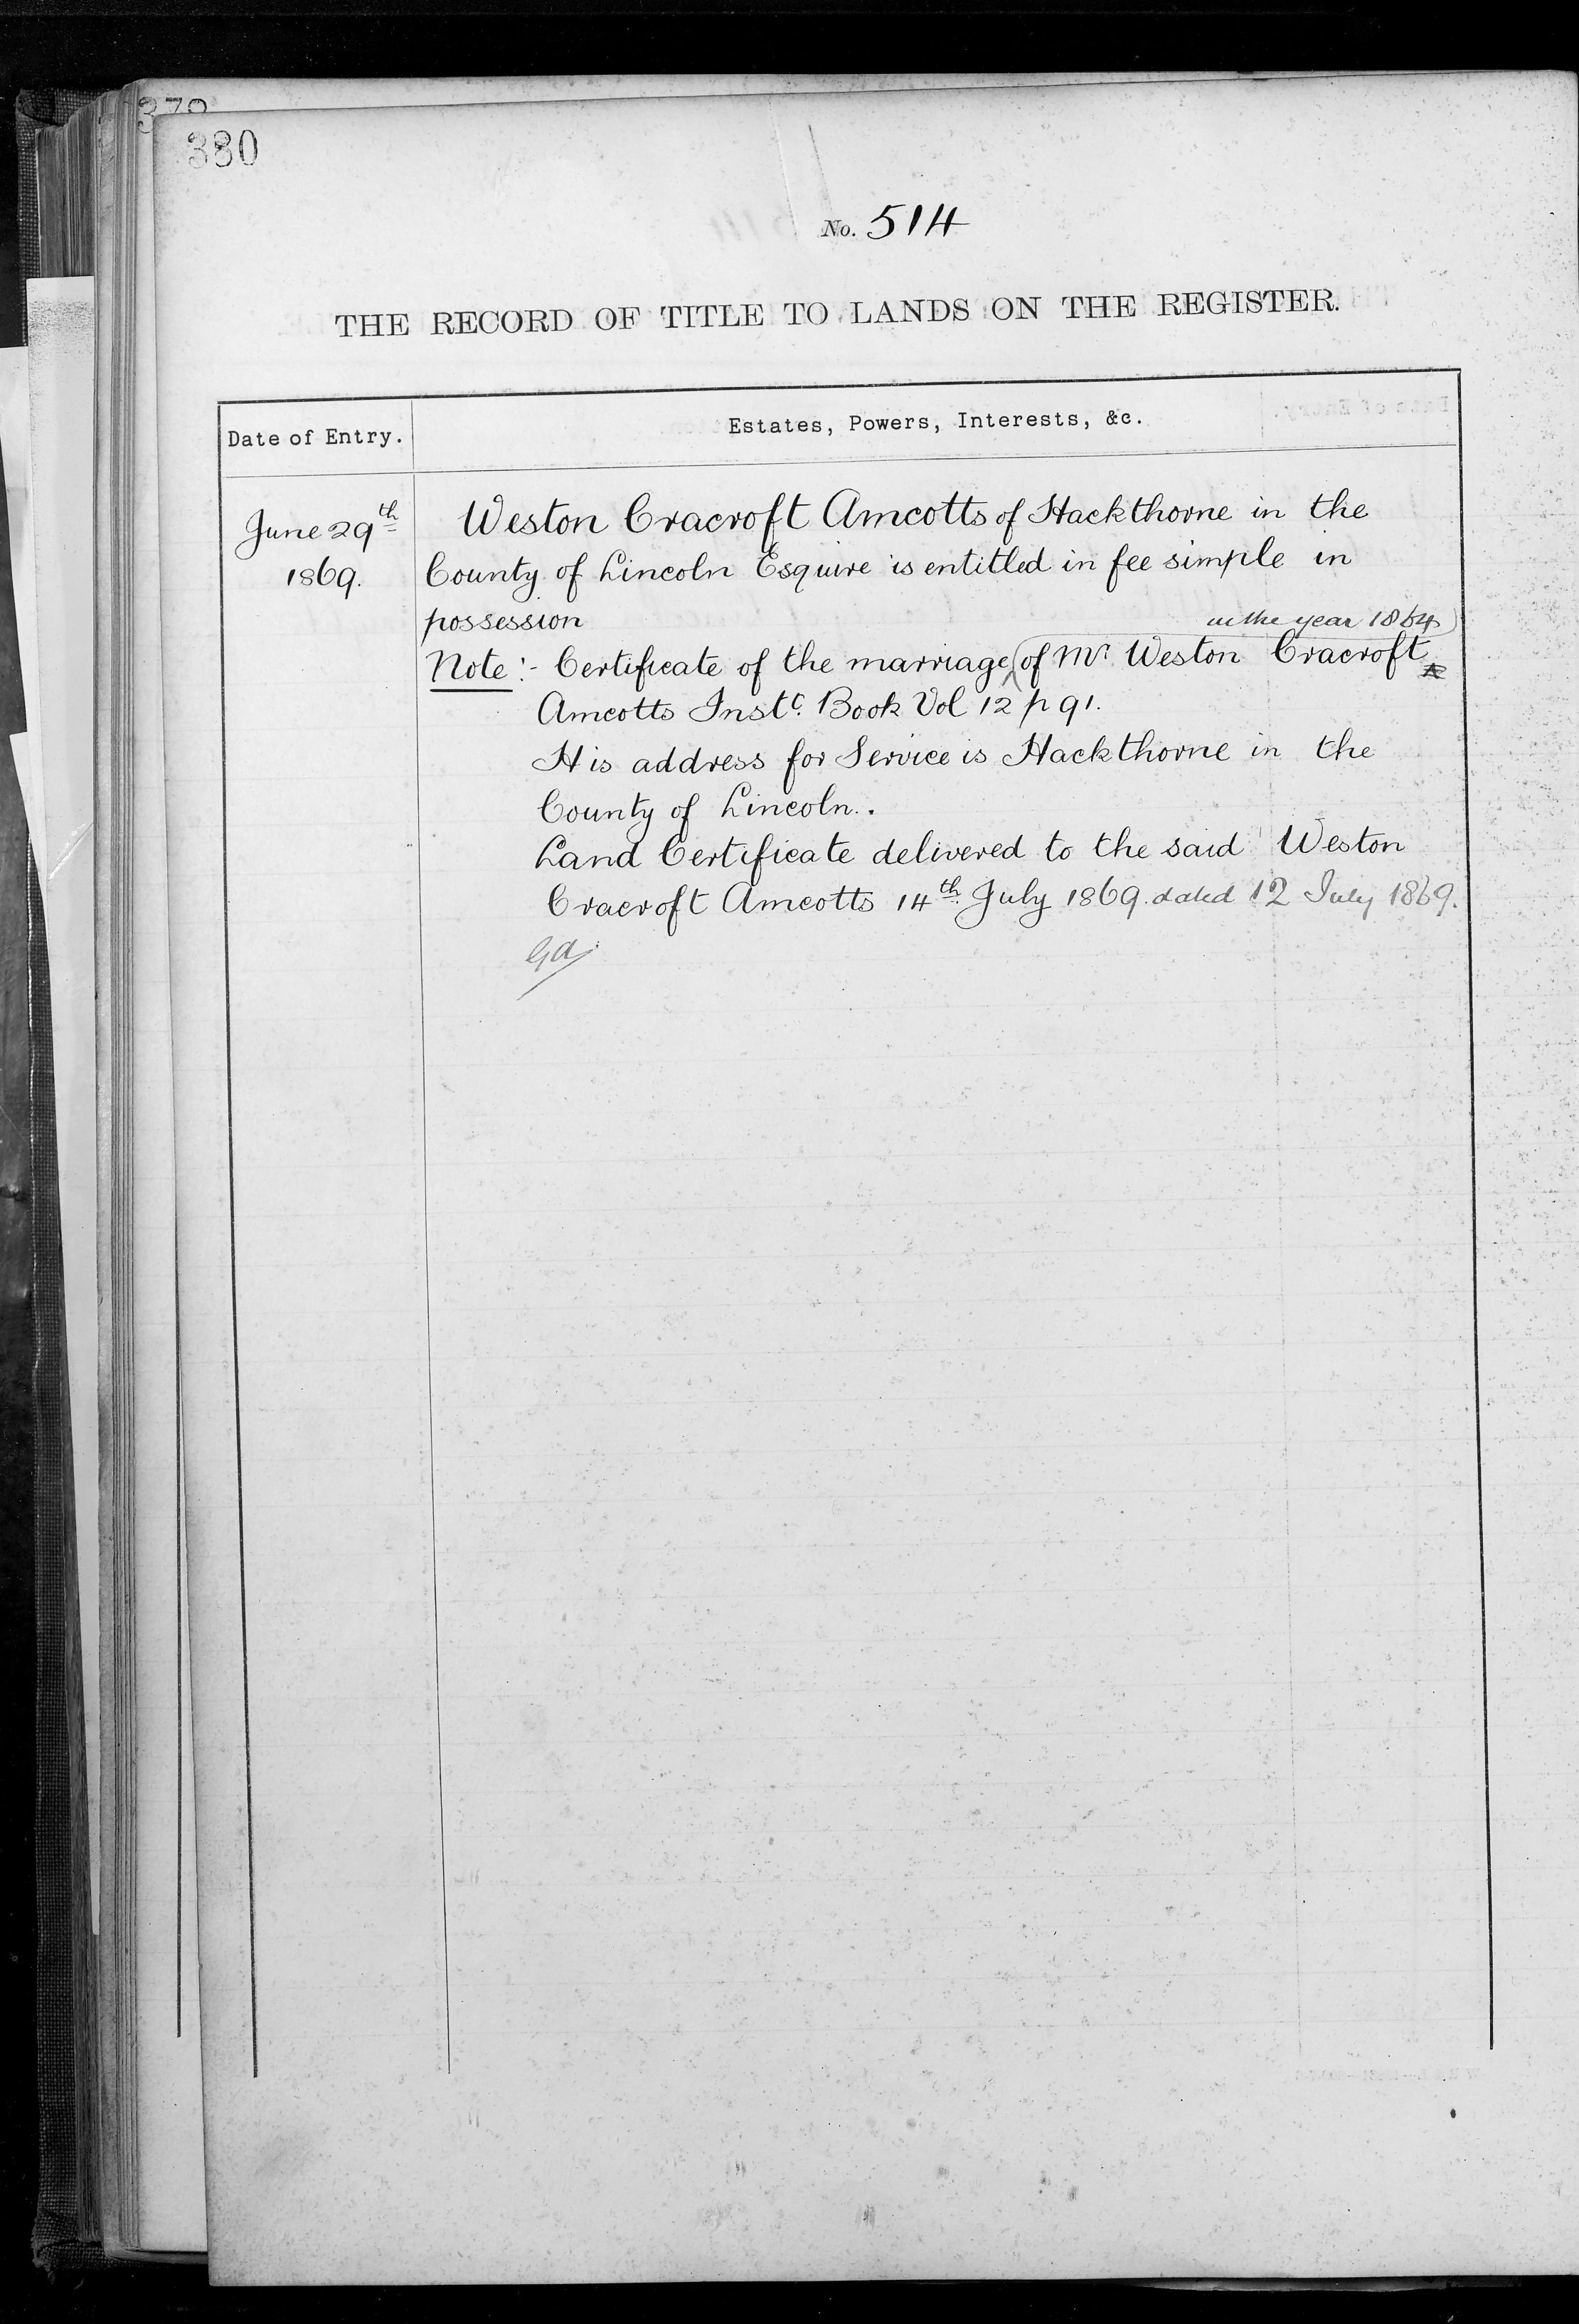 379
380
No. 514
THE RECORD OF TITLE TO LANDS ON THE REGISTER.
Date of Entry.
Estates, Powers, Interests, &c.
June 29th
1869.
Weston Cracroft Amcotts of Hackthorne in the
County of Lincoln Esquire is entitled in fee simple in
possession
in the year 1864
Note:- Certificate of the marriage of Mr Weston Cracroft
Amcotts Instt. Book Vol 12 p 91.
His address for Service is Hackthorne in the
County of Lincoln.
Land Certificate delivered to the said Weston
Cracroft Amcotts 14th July 1869. dated 12 July 1869.